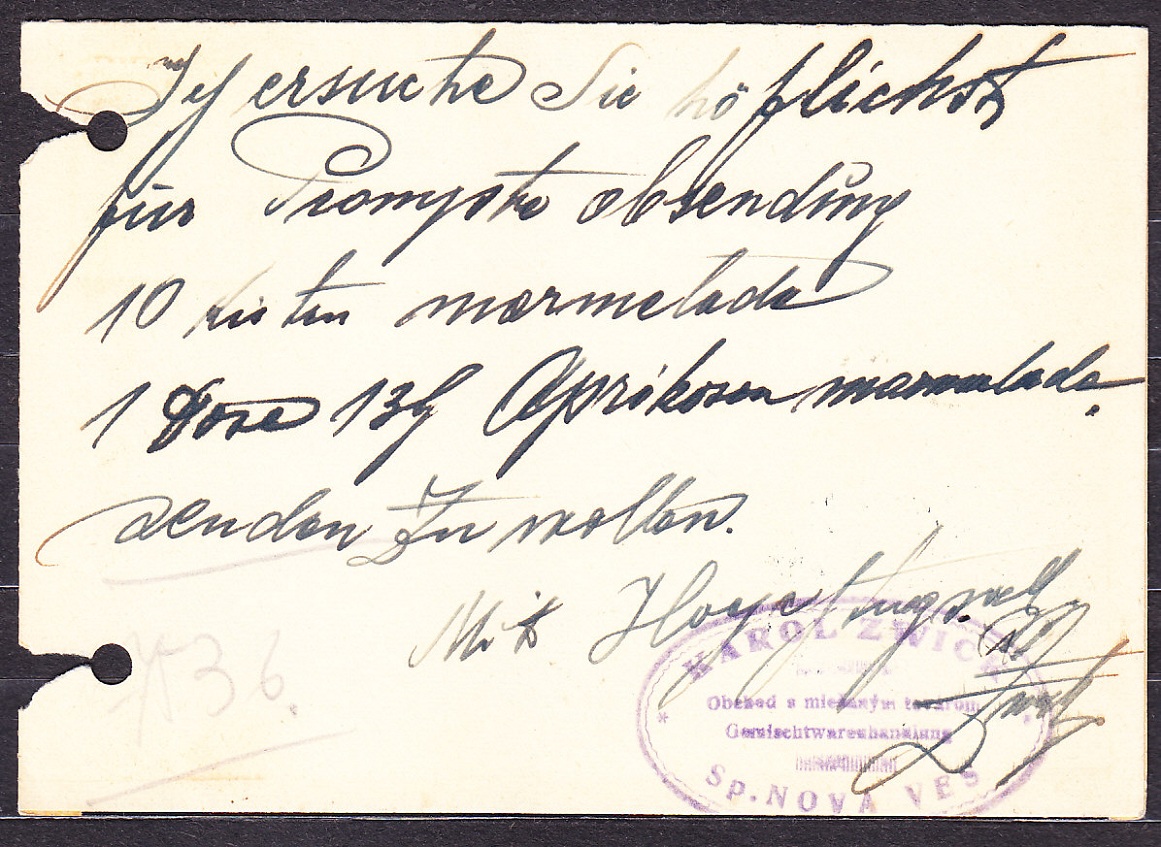 Ich ersuche Sie höflichst
für Prompte absendung
10 kisten marmelada
1 Dose 13g Aprikosen marmelada.
senden Zu wollen.
Mit
KAROL ZWICK
Obchod s miešaným tovarom
Gemischtwarenhandlung
SP. NOVÁ VES